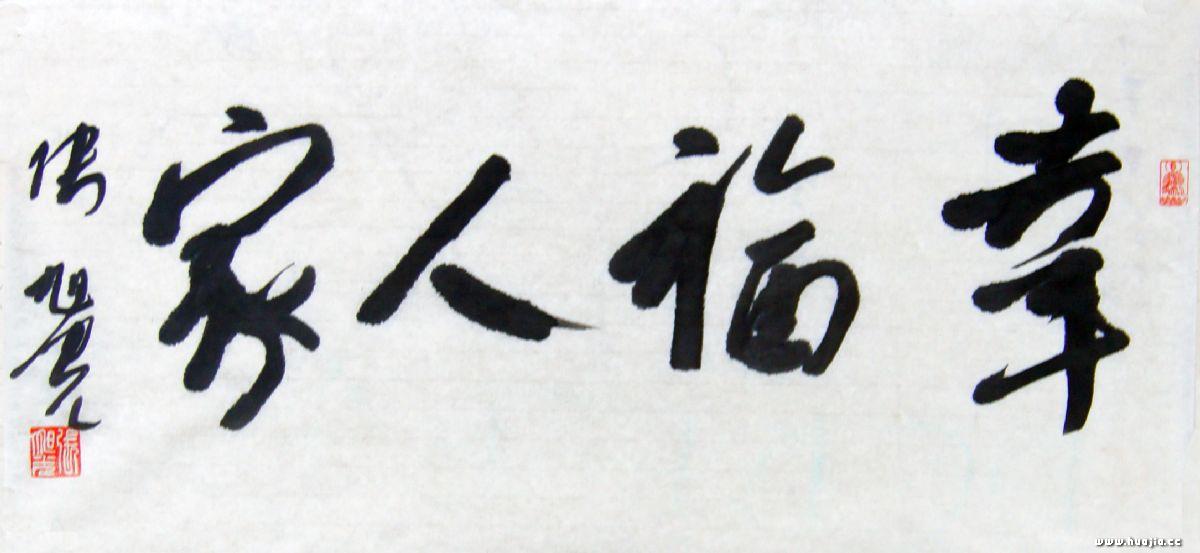 幸福人家
張旭光
張旭光
www.huajia.cc